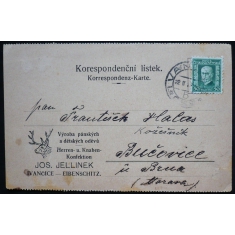 Korespondenční lístek.
Korrespondenz-Karte.
pan František Hlalas
Kožišník
Bučovice
u Brna
(Morava)
Výroba pánských
a dětských oděvů
Herren- u. Knaben-
Konfektion
JOS. JELLINEK
IVANČICE — EIBENSCHITZ.